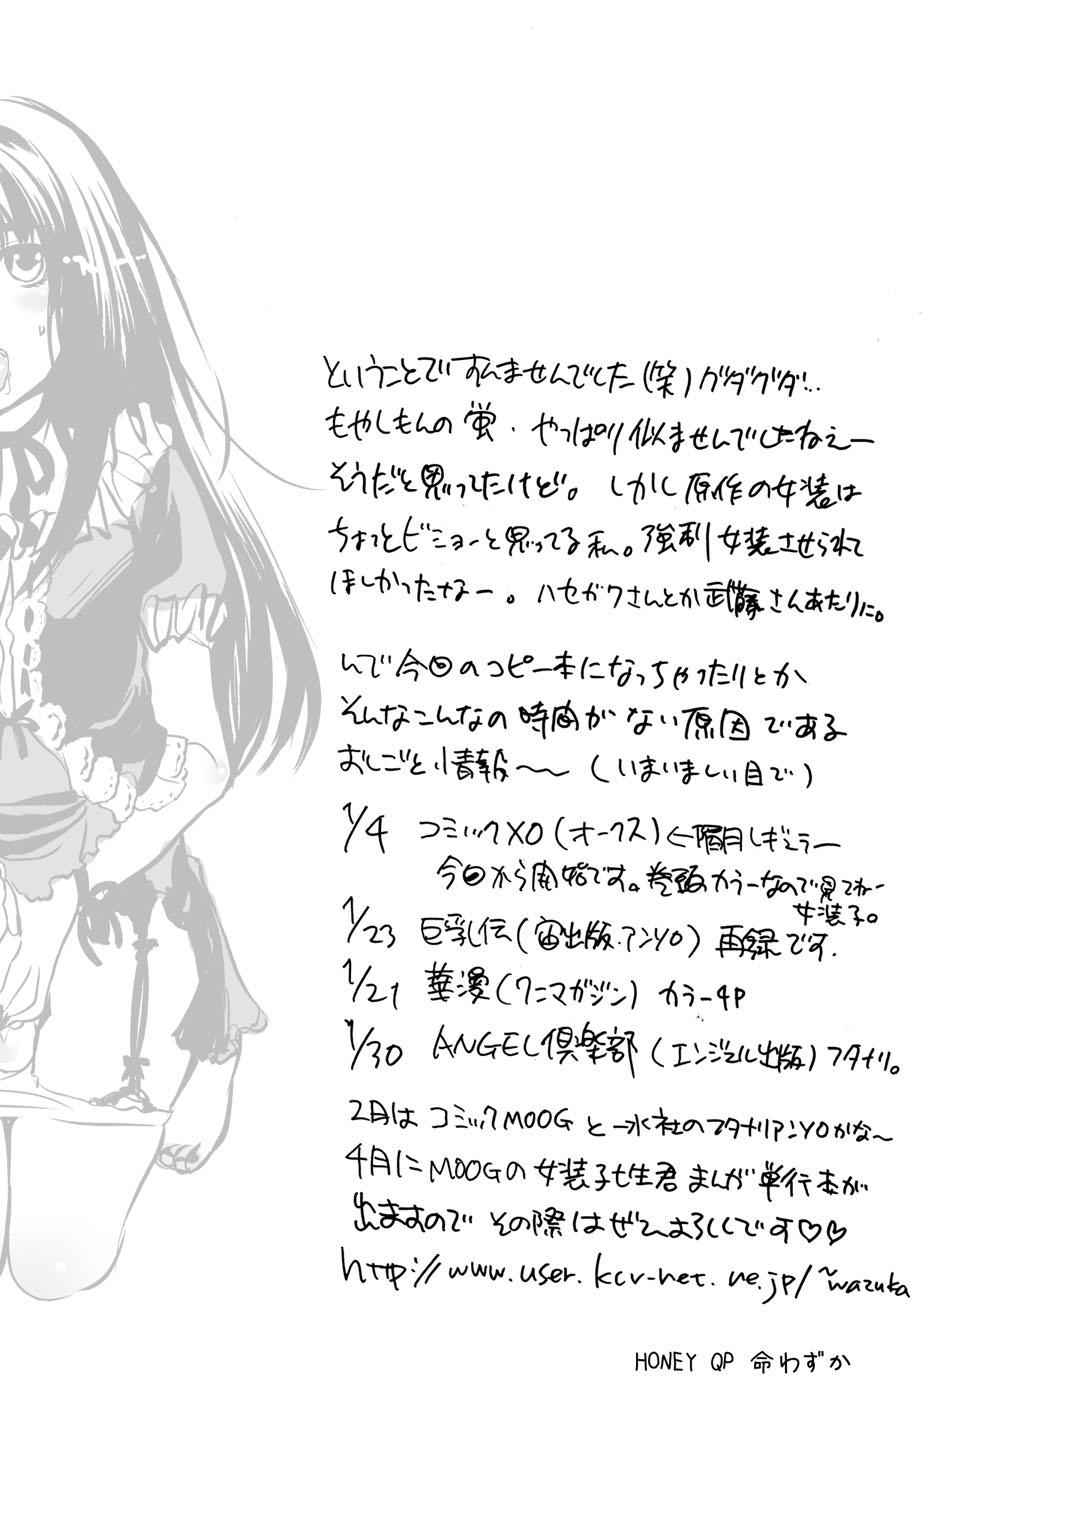 ということですんませんでした(笑)グダグダ…
もやしもんの蛍・やっぱり似ませんでしたねえー
そうだと思ってたけど。しかし原作の女装は
ちょっとビミョーと思ってる私。強制女装させられて
ほしかったなー。ハセガワさんとか武藤さんあたりに。
んで今回のコピー本になっちゃったりとか
そんなこんなの時間がない原因である
おしごと情報〜〜(いまいましい目で)
1/4 コミックXO(オークス)←隔月レギュラー
今回から開始です。巻頭カラーなので見てねー
女装子。
1/23 巨乳伝(宙出版.アンソロ)再録です.
1/21 華漫(ワニマガジン)カラー4P
1/30 ANGEL倶楽部(エンジェル出版)フタナリ。
2月はコミックMOOGと一水社のフタナリアンソロかな〜
4月にMOOGの女装子七生君まんが単行本が
出ますのでその際はぜひよろしくです♡♡
http://www.user.kcv-net.ne.jp/~wazuka
HONEY QP 命わずか